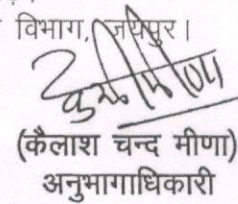 विभाग, जयपुर।
(कैलाश चन्द मीणा)
अनुभागाधिकारी